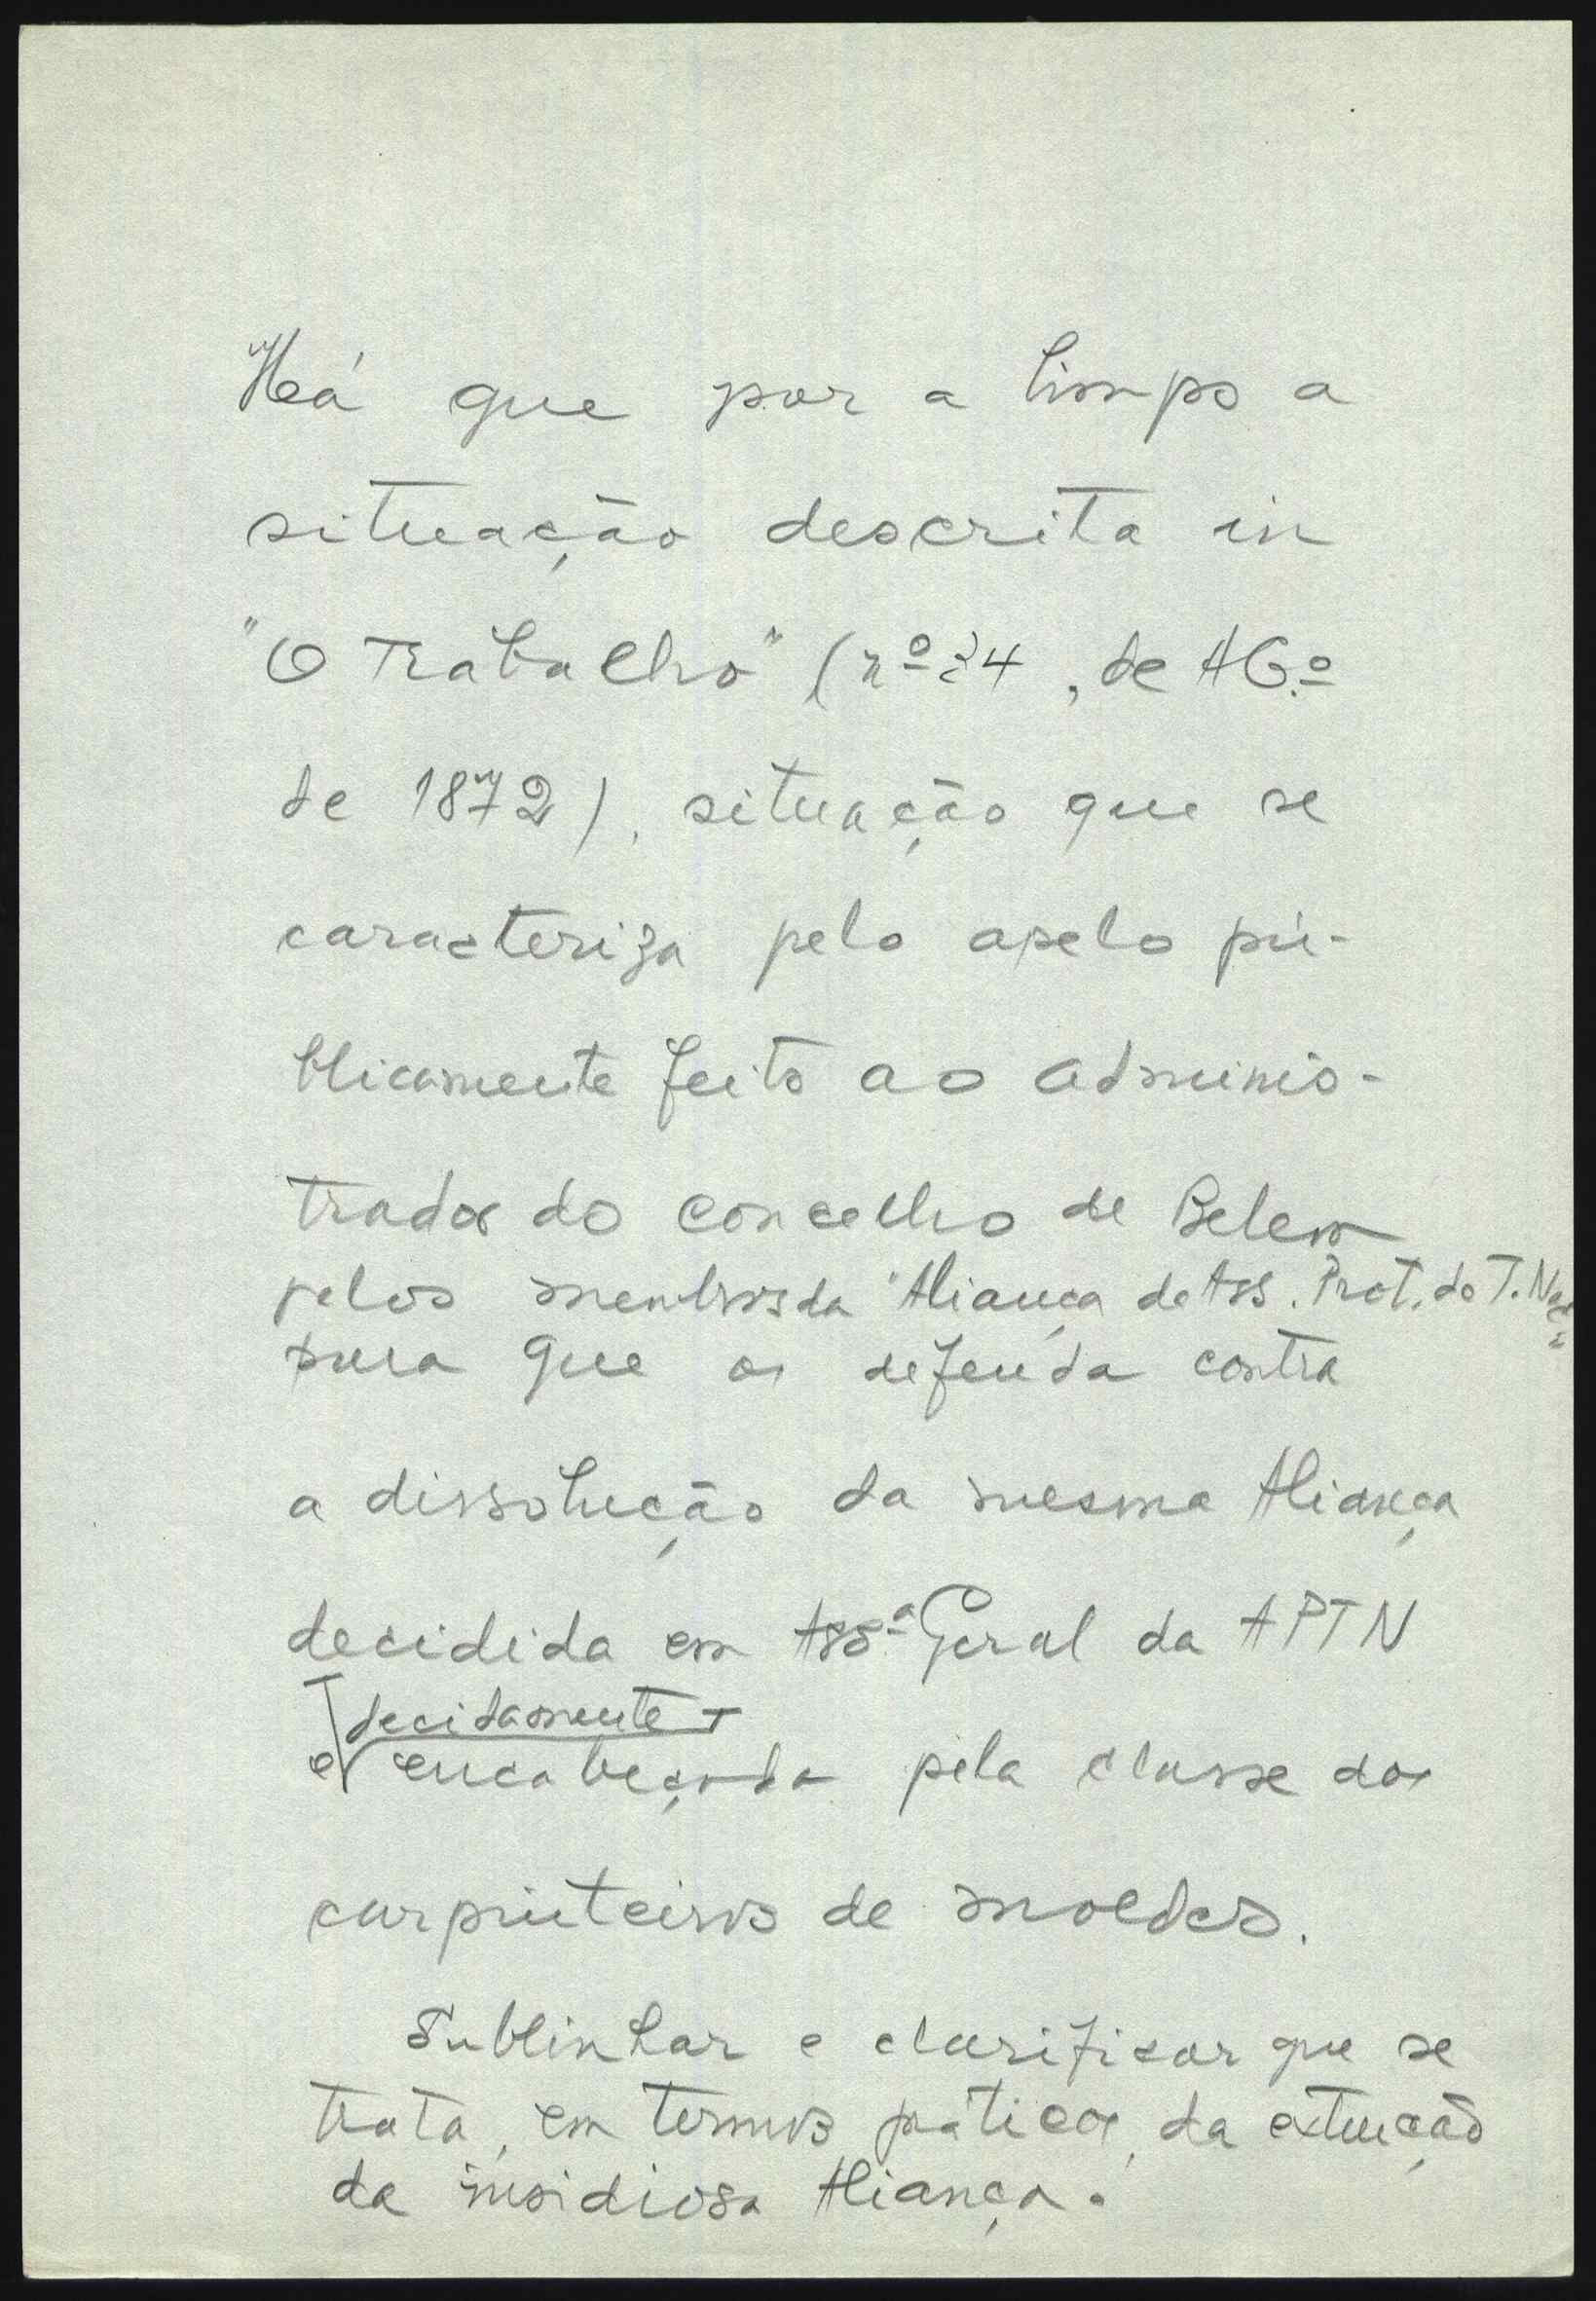 Há que por a limpo a
situação descrita in
"O Trabalho" (nº 24, de AG.º
de 1872), situação que se
caracteriza pelo apelo pú-
blicamente feito ao adminis-
trador do concelho de Belem
pelos membros da "Aliança de Ass. Prot. do T. Nac.
para que os defenda contra
a dissolução da mesma Aliança
decidida em Assª Geral da APTN
decidamente
e encabeçada pela classe dos
carpinteiros de moldes.
Sublinhar e clarificar que se
trata, em termos práticos, da extinção
da insidiosa Aliança.